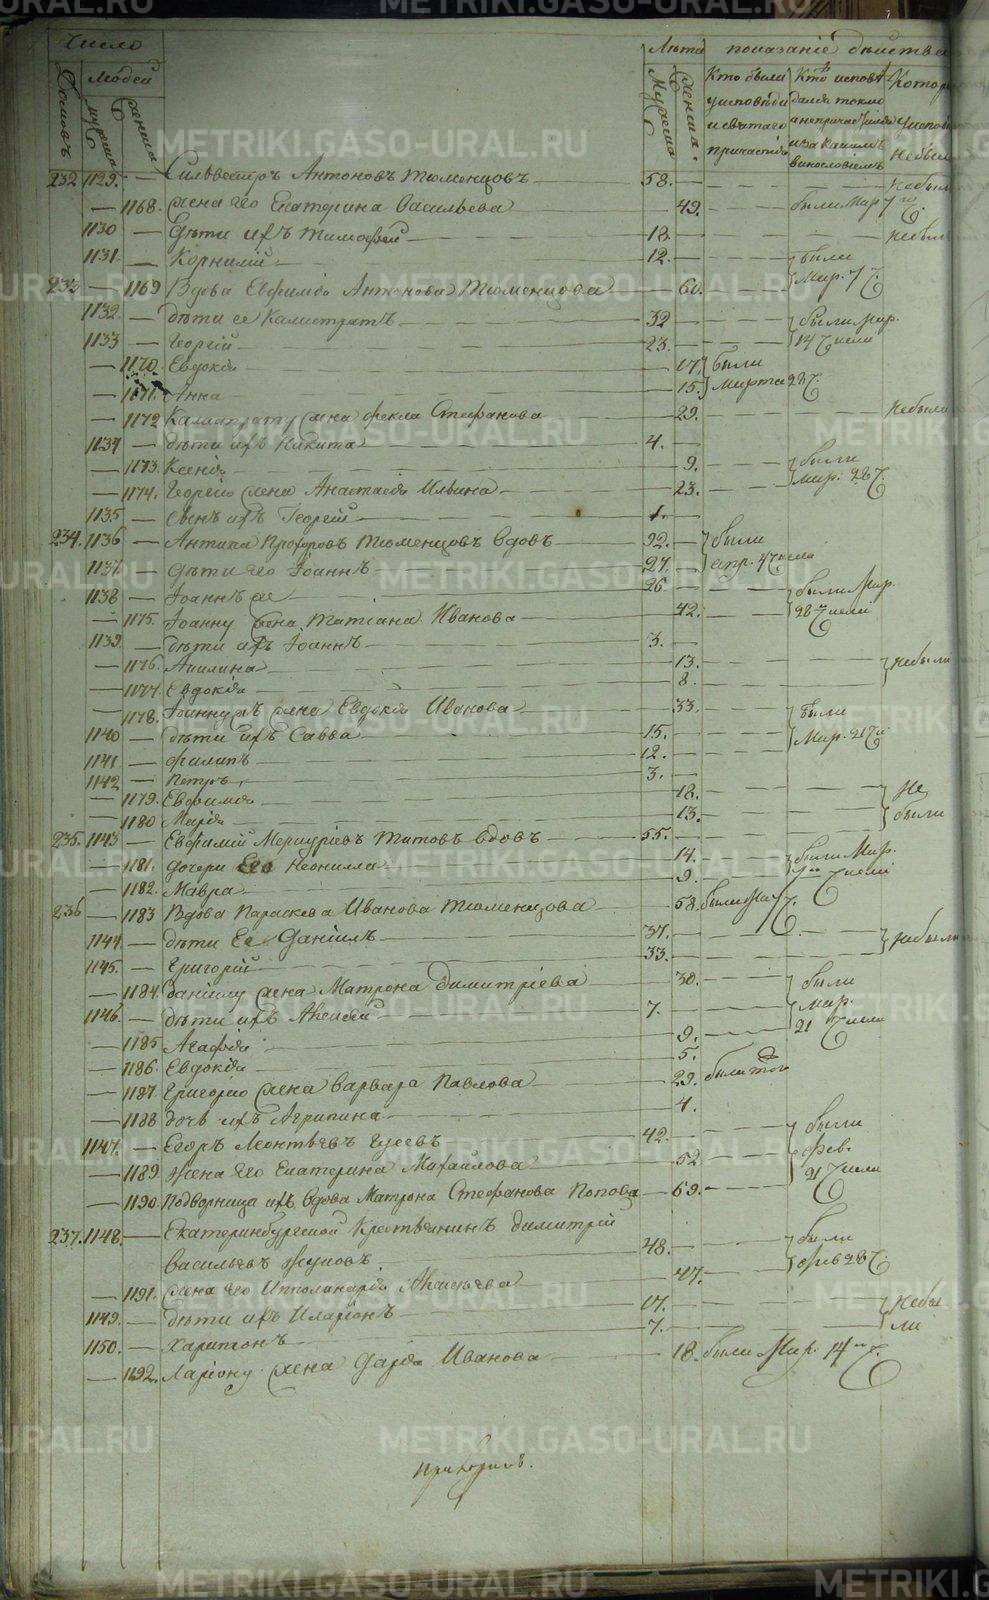 Число
Лѣта показаніе дѣйства
Домовъ Людей Мужеска Женска Кто были Кто исповѣ Котор
мужеска женска у исповѣди дался токмо у испов
и святаго а не причастился небыли
причастія и за какимъ
винословіемъ
232 1129. — Сильвестръ Антоновъ Тюменцовъ — 58. — небыли
— 1168. жена его Екатерина Васильева — 49. были Мар. 7 го Ч.
1130 — дѣти ихъ Тимофей — 18. — небыли
1131. — Корнилій — 12. — были
233 — 1169 Вдова Евфимія Антонова Тюменцова — 60. Мар. 7 Ч.
1132. — дѣти ее Калистратъ — 32 — были Мар.
1133 — Георгій — 23. — 14 Числа
— 1170. Евдокія — 17. были
— 1171. Анна — 15. Марта 28 Ч.
— 1172 Калистрату жена Фекла Стефанова — 29. небыли
1134 — дѣти ихъ Никита — 4. —
— 1173. Ксенія — 9. были
— 1174. Георгію жена Анастасія Ильина — 23. Мар. 28 Ч.
1135 — сынъ ихъ Георгій — 1. —
234. 1136 — Антипа Прохоровъ Тюменцовъ вдовъ — 92. — были
1137 — дѣти его Іоаннъ — 27. — апр. 4 Числа
1138 — Іоаннъ же — 26 — были Мар.
— 1175. Іоанну жена Татіана Иванова — 42. 28 Числа
1139. — дѣти ихъ Іоаннъ — 3. —
— 1176. Акилина — 13. небыли
— 1177. Евдокія — 8.
— 1178. Іоанну жъ жена Евдокія Иванова — 33. были
1140 — дѣти ихъ Савва — 15. Мар. 21 Ч.
1141 — Филипъ — 12. —
1142 — Петръ — 3. —
— 1179. Евфимія — 18. Не
— 1180 Марія — 13. были
235. 1143 — Евфимій Меркуріевъ Титовъ вдовъ — 55. —
— 1181. дочери Его Неонила — 14. были Мар.
— 1182. Мавра — 9. Числа
236 — 1183 Вдова Параскева Иванова Тюменцова — 58. были Мар. Ч.
1144. — дѣти Ее Даніилъ — 37. — небыли
1145. — Григорій — 33. —
— 1184. Даніилу жена Матрона Димитріева — 30. были
1146. — дѣти ихъ Алексей — 7. Мар.
— 1185 Агафія — 9. 21 Числа
— 1186. Евдокія — 5.
— 1187. Григорію жена Варвара Павлова — 29. были
— 1188 дочь ихъ Агрипина — 4.
1147. — Егоръ Леонтьевъ Гусевъ — 42. были
— 1189. жена его Екатерина Михайлова — 52. Фев.
— 1190. Подворница ихъ вдова Матрона Стефанова Попова — 69. 21 Числа
237. 1148. — Екатеринбургской Крестьянинъ Димитрій
Васильевъ Жуковъ — 48. — были
— 1191. жена его Апполинарія Алексѣева — 47. Фев 28 Ч.
1149. — дѣти ихъ Иларіонъ — 17. небы
1150. — Харитонъ — 7. ли
— 1192. Ларіону жена Дарія Иванова — 18. были Мар. 14 Ч.